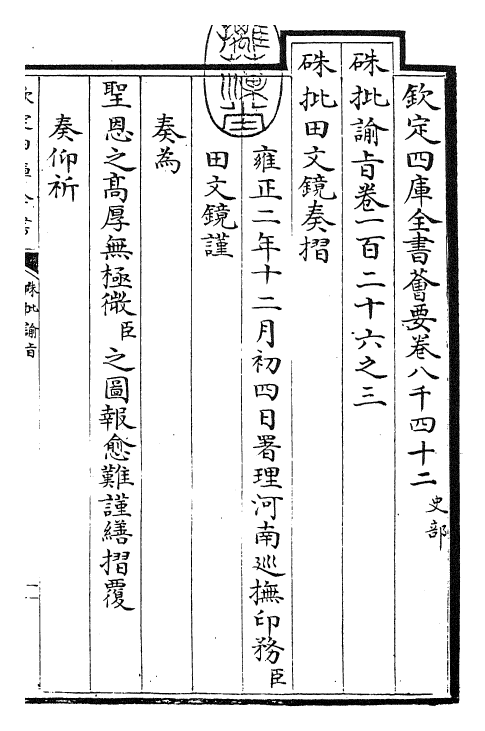 欽定四庫全書薈要卷八千四十二 史部
硃批諭旨卷一百二十六之三
硃批田文鏡奏摺
雍正二年十二月初四日署理河南巡撫印務臣
田文鏡謹
奏為
聖恩之高厚無極微臣之圖報愈難謹繕摺覆
奏仰祈
欽定四庫全書
硃批諭旨
一